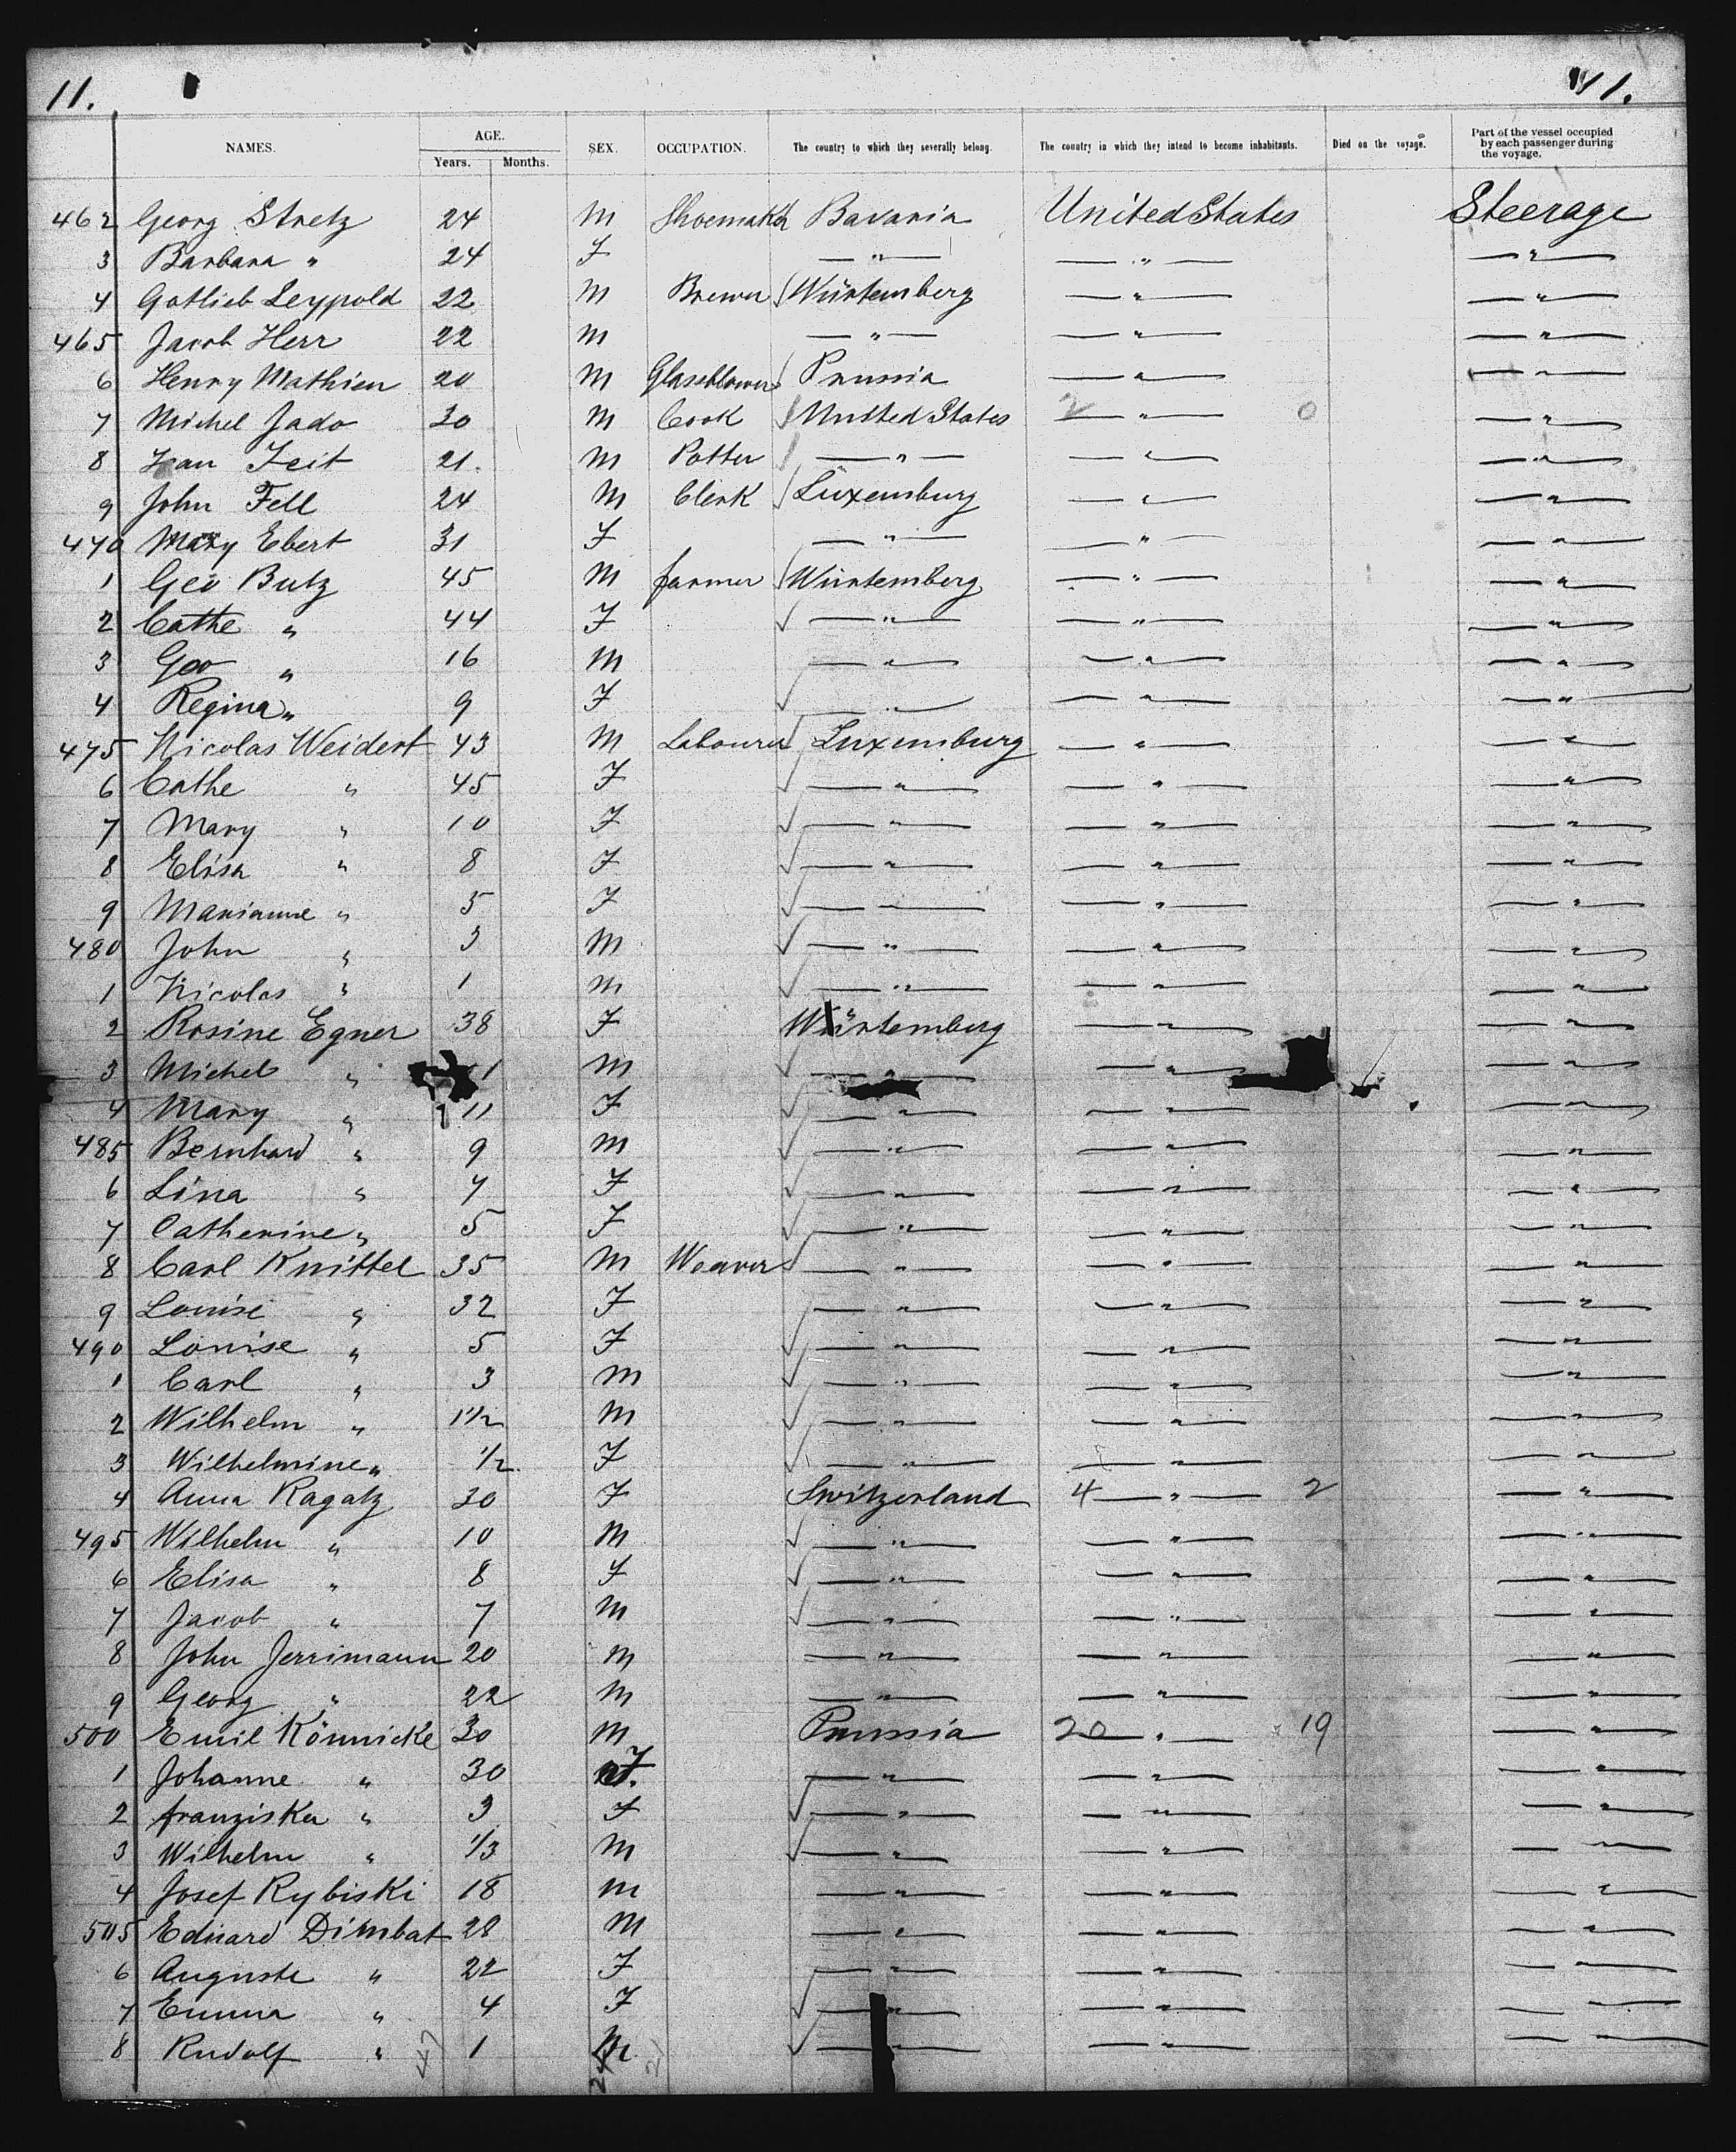 11. 11.
NAMES. AGE. Years. Months. SEX. OCCUPATION. The country to which they severally belong. The country in which they intend to become inhabitants. Died on the voyage. Part of the vessel occupied by each passenger during the voyage.
462 Georg Stretz 24 M Shoemaker Bavaria United States Steerage
3 Barbara " 24 F " " "
4 Gottlieb Leypold 22 M Brewer Würtemberg " "
465 Jacob Herr 22 M " " "
6 Henry Mathieu 20 M Glassblower Prussia " "
7 Michel Jado 30 M Cook United States 2 " 0 "
8 Feit 21 M Potter " " "
9 John Fell 24 M Clerk Luxemburg " "
470 Mary Ebert 31 F " " "
1 Geo Butz 45 M farmer Würtemberg " "
2 Cathe " 44 F " " "
3 Geo " 16 M " " "
4 Regina " 9 F " " "
475 Nicolas Weidert 43 M Labourer Luxemburg " "
6 Cathe " 45 F " " "
7 Mary " 10 F " " "
8 Elisa " 8 F " " "
9 Marianne " 5 F " " "
480 John " 3 M " " "
1 Nicolas " 1 M " " "
2 Rosine Egner 38 F Würtemberg " "
3 Michel " M " " "
4 Mary " 11 F " " "
485 Bernhard " 9 M " " "
6 Lina " 7 F " " "
7 Catherine " 5 F " " "
8 Carl Knittel 35 M Weaver " " "
9 Louise " 32 F " " "
490 Louise " 5 F " " "
1 Carl " 3 M " " "
2 Wilhelm " 1 1/2 M " " "
3 Wilhelmine " 1/2 F " " "
4 Anna Ragatz 30 F Switzerland 4 " 2 "
495 Wilhelm " 10 M " " "
6 Elisa " 8 F " " "
7 Jacob " 7 M " " "
8 John Jerrimann 20 M " " "
9 Georg " 22 M " " "
500 Emil Könnicke 30 M Prussia 20 " 19 "
1 Johanne " 30 F. " " "
2 franziska " 3 F " " "
3 Wilhelm " 1/3 M " " "
4 Josef Rybiski 18 M " " "
505 Eduard Dimbat 28 M " " "
6 Auguste " 22 F " " "
7 Emma " 4 F " " "
8 Rudolf " 1 M " " "
47 24 21